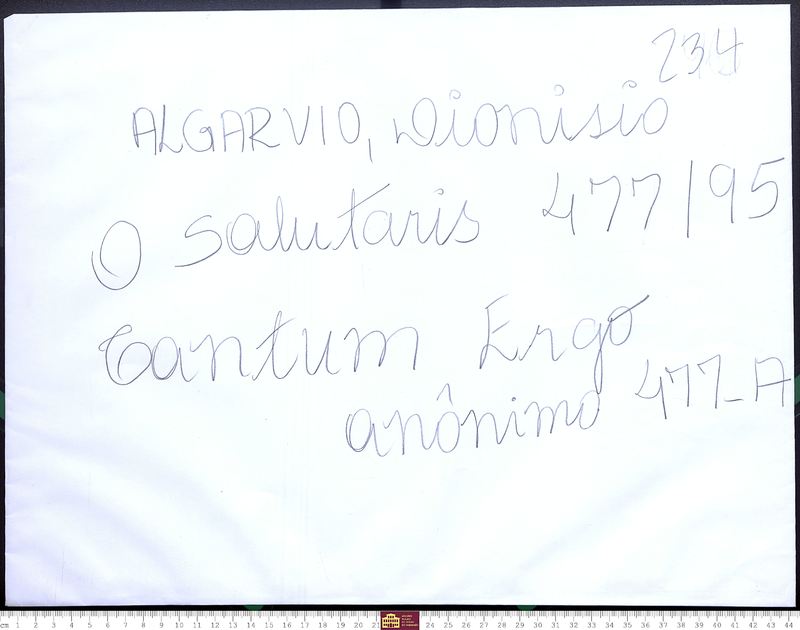 234
ALGARVIO, Dionisio
O Salutaris 477/95
Tantum Ergo
anônimo 477-A
cm 1 2 3 4 5 6 7 8 9 10 11 12 13 14 15 16 17 18 19 20 21 24 25 26 27 28 29 30 31 32 33 34 35 36 37 38 39 40 41 42 43 44